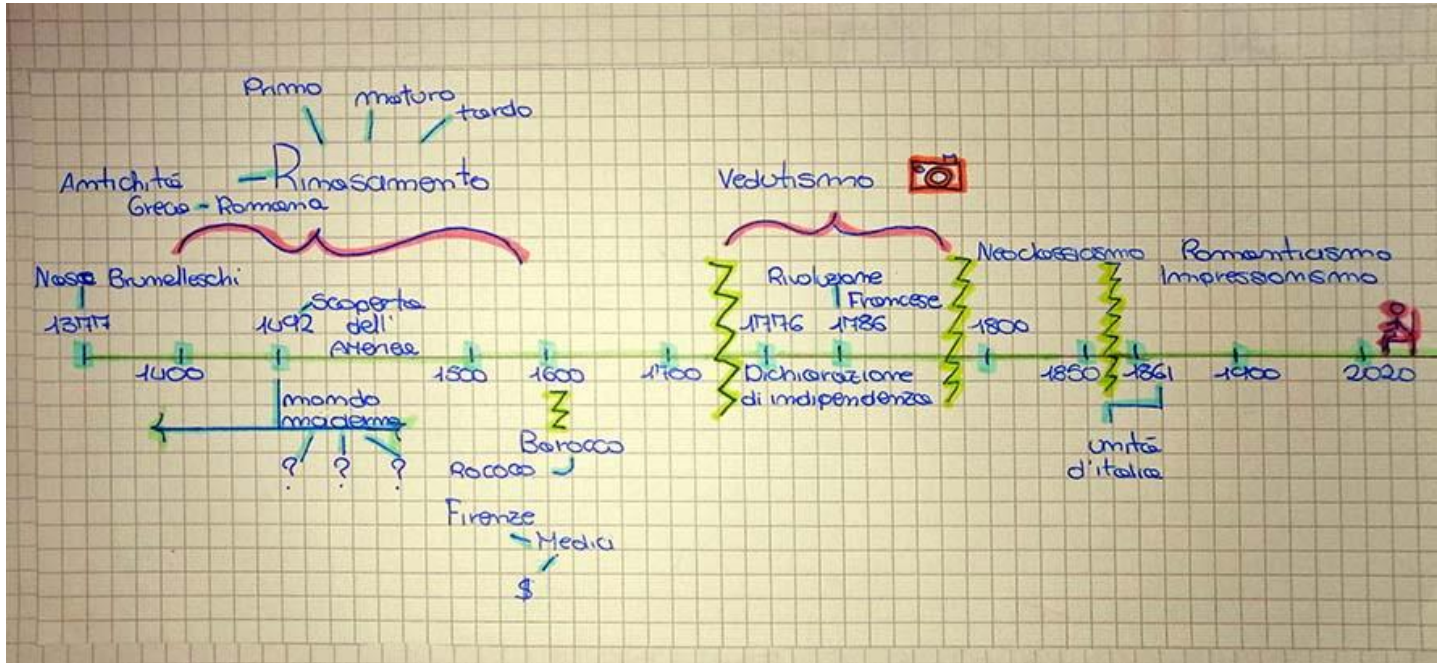 Primo
maturo
tardo
Antichità
Rinasamento
Greco - Romana
Vedutismo
Nasce Brunelleschi
1377
1492
scoperta
dell'
America
Rivoluzione
Francese
1776
1786
Neoclassiasmo
1800
Romanticismo
Impressionismo
1400
1500
1600
1700
Dichiarazione
di indipendenza
1850
1861
1900
2020
mondo
moderno
? ? ?
Barocco
Rococo
Firenze
Medici
$
unità
d'italia